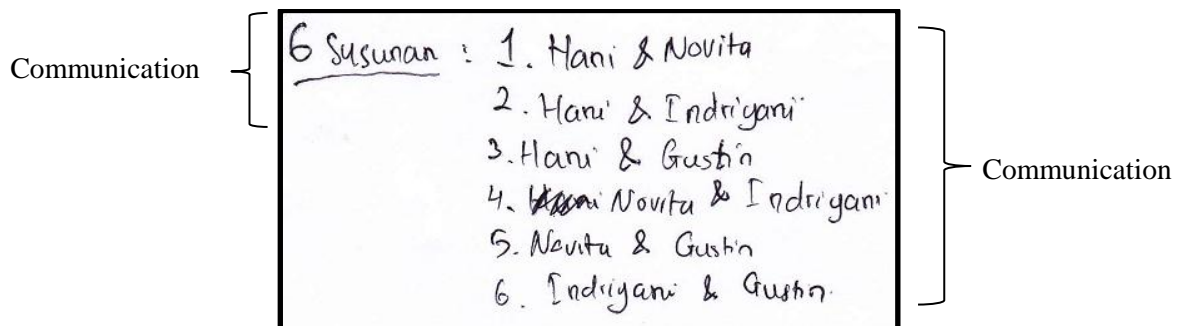 Communication
6 Susunan : 1. Hani & Novita
2. Hani & Indriyani
3. Hani & Gustin
4. Novita & Indriyani
5. Novita & Gustin
6. Indriyani & Gustin
Communication